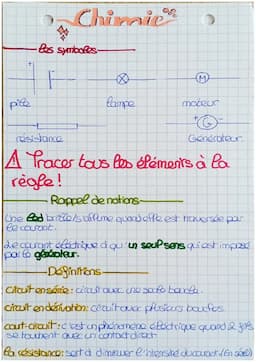 Chimie
Les symboles
M
pile
lampe
moteur
G
résistance
Générateur
⚠ Tracer tous les éléments à la
règle !
Rappel de notions
Une led brille/s'allume quand elle est traversée par
le courant.
Le courant électrique a qu'un seul sens qui est imposé
par le générateur.
Définitions
Circuit en série : circuit avec une seule boucle.
Circuit en dérivation : circuit avec plusieurs boucles.
court-circuit : c'est un phénomène électrique quand 2 fils
se touchent avec un contact direct.
La résistance : sert à diminuer l'intensité du courant